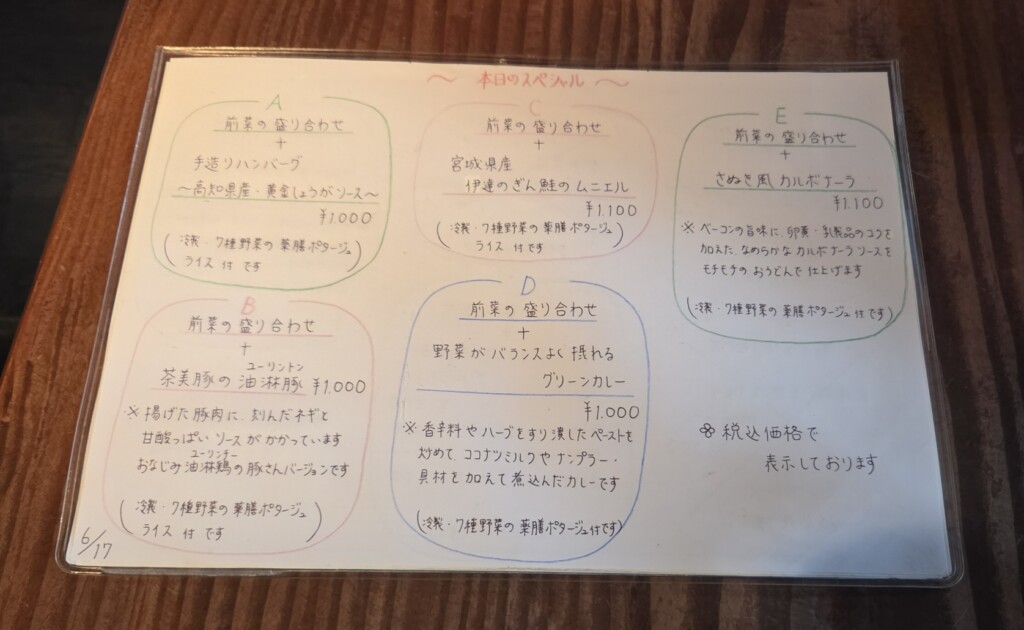 ～ 本日のスペシャル ～
A
前菜の盛り合わせ
+
手造りハンバーグ
～高知県産・黄金しょうがソース～
¥1.000
(冷製・7種野菜の薬膳ポタージュ
ライス 付です)
B
前菜の盛り合わせ
+
ユーリントン
茶美豚の油淋豚 ¥1,000
※ 揚げた豚肉に、刻んだネギと
甘酸っぱいソースがかかっています
ユーリンチー
おなじみ油淋鶏の豚さんバージョンです
(冷製・7種野菜の薬膳ポタージュ
ライス 付です)
6/17
C
前菜の盛り合わせ
+
宮城県産
伊達のぎん鮭のムニエル
¥1.100
(冷製・7種野菜の薬膳ポタージュ
ライス 付です)
D
前菜の盛り合わせ
+
野菜がバランスよく摂れる
グリーンカレー
¥1.000
※ 香辛料やハーブをすり潰したペーストを
炒めて、ココナツミルクやナンプラー・
具材を加えて煮込んだカレーです
(冷製・7種野菜の薬膳ポタージュ付です)
E
前菜の盛り合わせ
+
さぬき風カルボナーラ
¥1.100
※ ベーコンの旨味に、卵黄・乳製品のコクを
加えた、なめらかなカルボナーラソースを
モチモチのおうどんで仕上げます
(冷製・7種野菜の薬膳ポタージュ付です)
税込価格で
表示しております